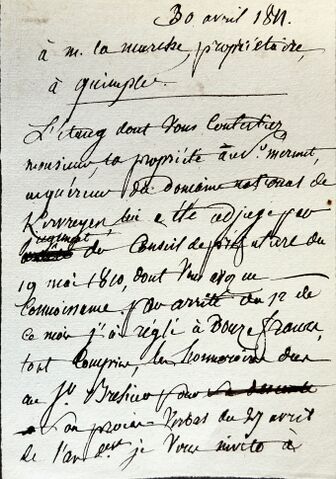 30 avril 1811.
à m. la marche, propriétaire,
à quimper.
L'étang dont vous contestiez
monsieur, la propriété à mr. mermet,
acquéreur du domaine national de
lui a été adjugé par
jugement du Conseil de préfecture du
19 mai 1810, dont vous avez
connaissance. par arrêté du 12 de
ce mois j'ai réglé à Douze francs,
tout compris, les honoraires dus
au Sr. pour
son procès verbal du 27 avril
de l'an der. je vous invite à